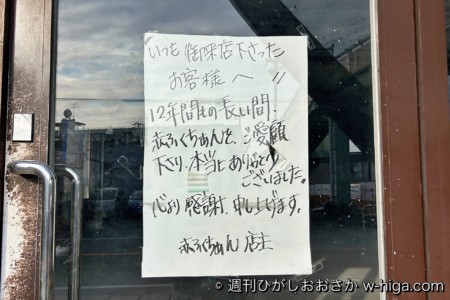 いつも御来店下さった
お客様へ //
12年間もの長い間、
赤ふくちゃんを、ご愛顧
下さり、本当にありがとう
ございました。
心より感謝、申し上げます。
赤ふくちゃん 店主
© 週刊ひがしおおさか w-higa.com